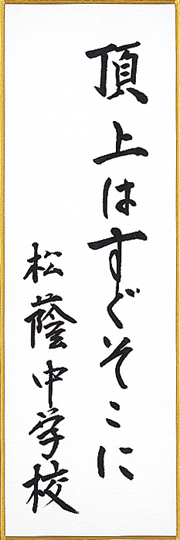 頂上はすぐそこに
松蔭中学校